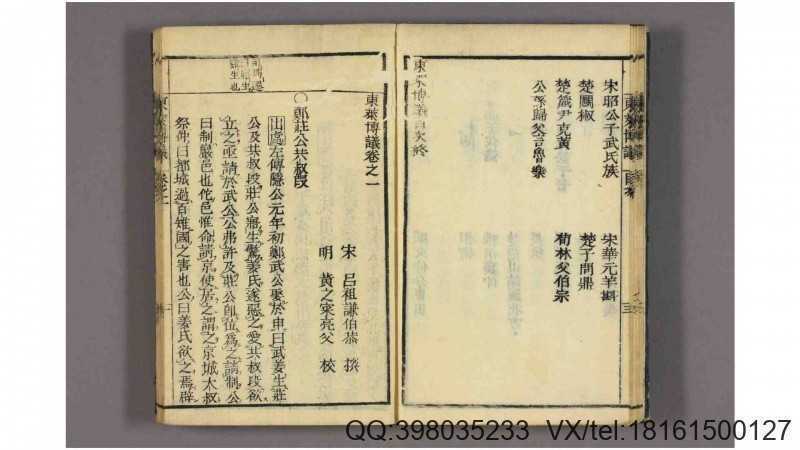 宋昭公子武氏族
宋華元羊斟
楚鬬椒
楚子問鼎
楚箴尹克黃
荀林父伯宗
公孫歸父言魯樂
東萊博議目次終
東萊博議卷之一
宋 呂祖謙伯恭 撰
明 黃之寀亮父 校
〇鄭莊公共叔段
出處左傳隱公元年初鄭武公娶於申曰武姜生莊
公及共叔段莊公寤生驚姜氏遂惡之愛共叔段欲
立之亟請於武公公弗許及莊公卽位爲之請制公
曰制嚴邑也佗邑惟命請京使居之謂之京城大叔
祭仲曰都城過百雉國之害也公曰姜氏欲之焉辟
QQ:398035233 VX/tel:18161500127